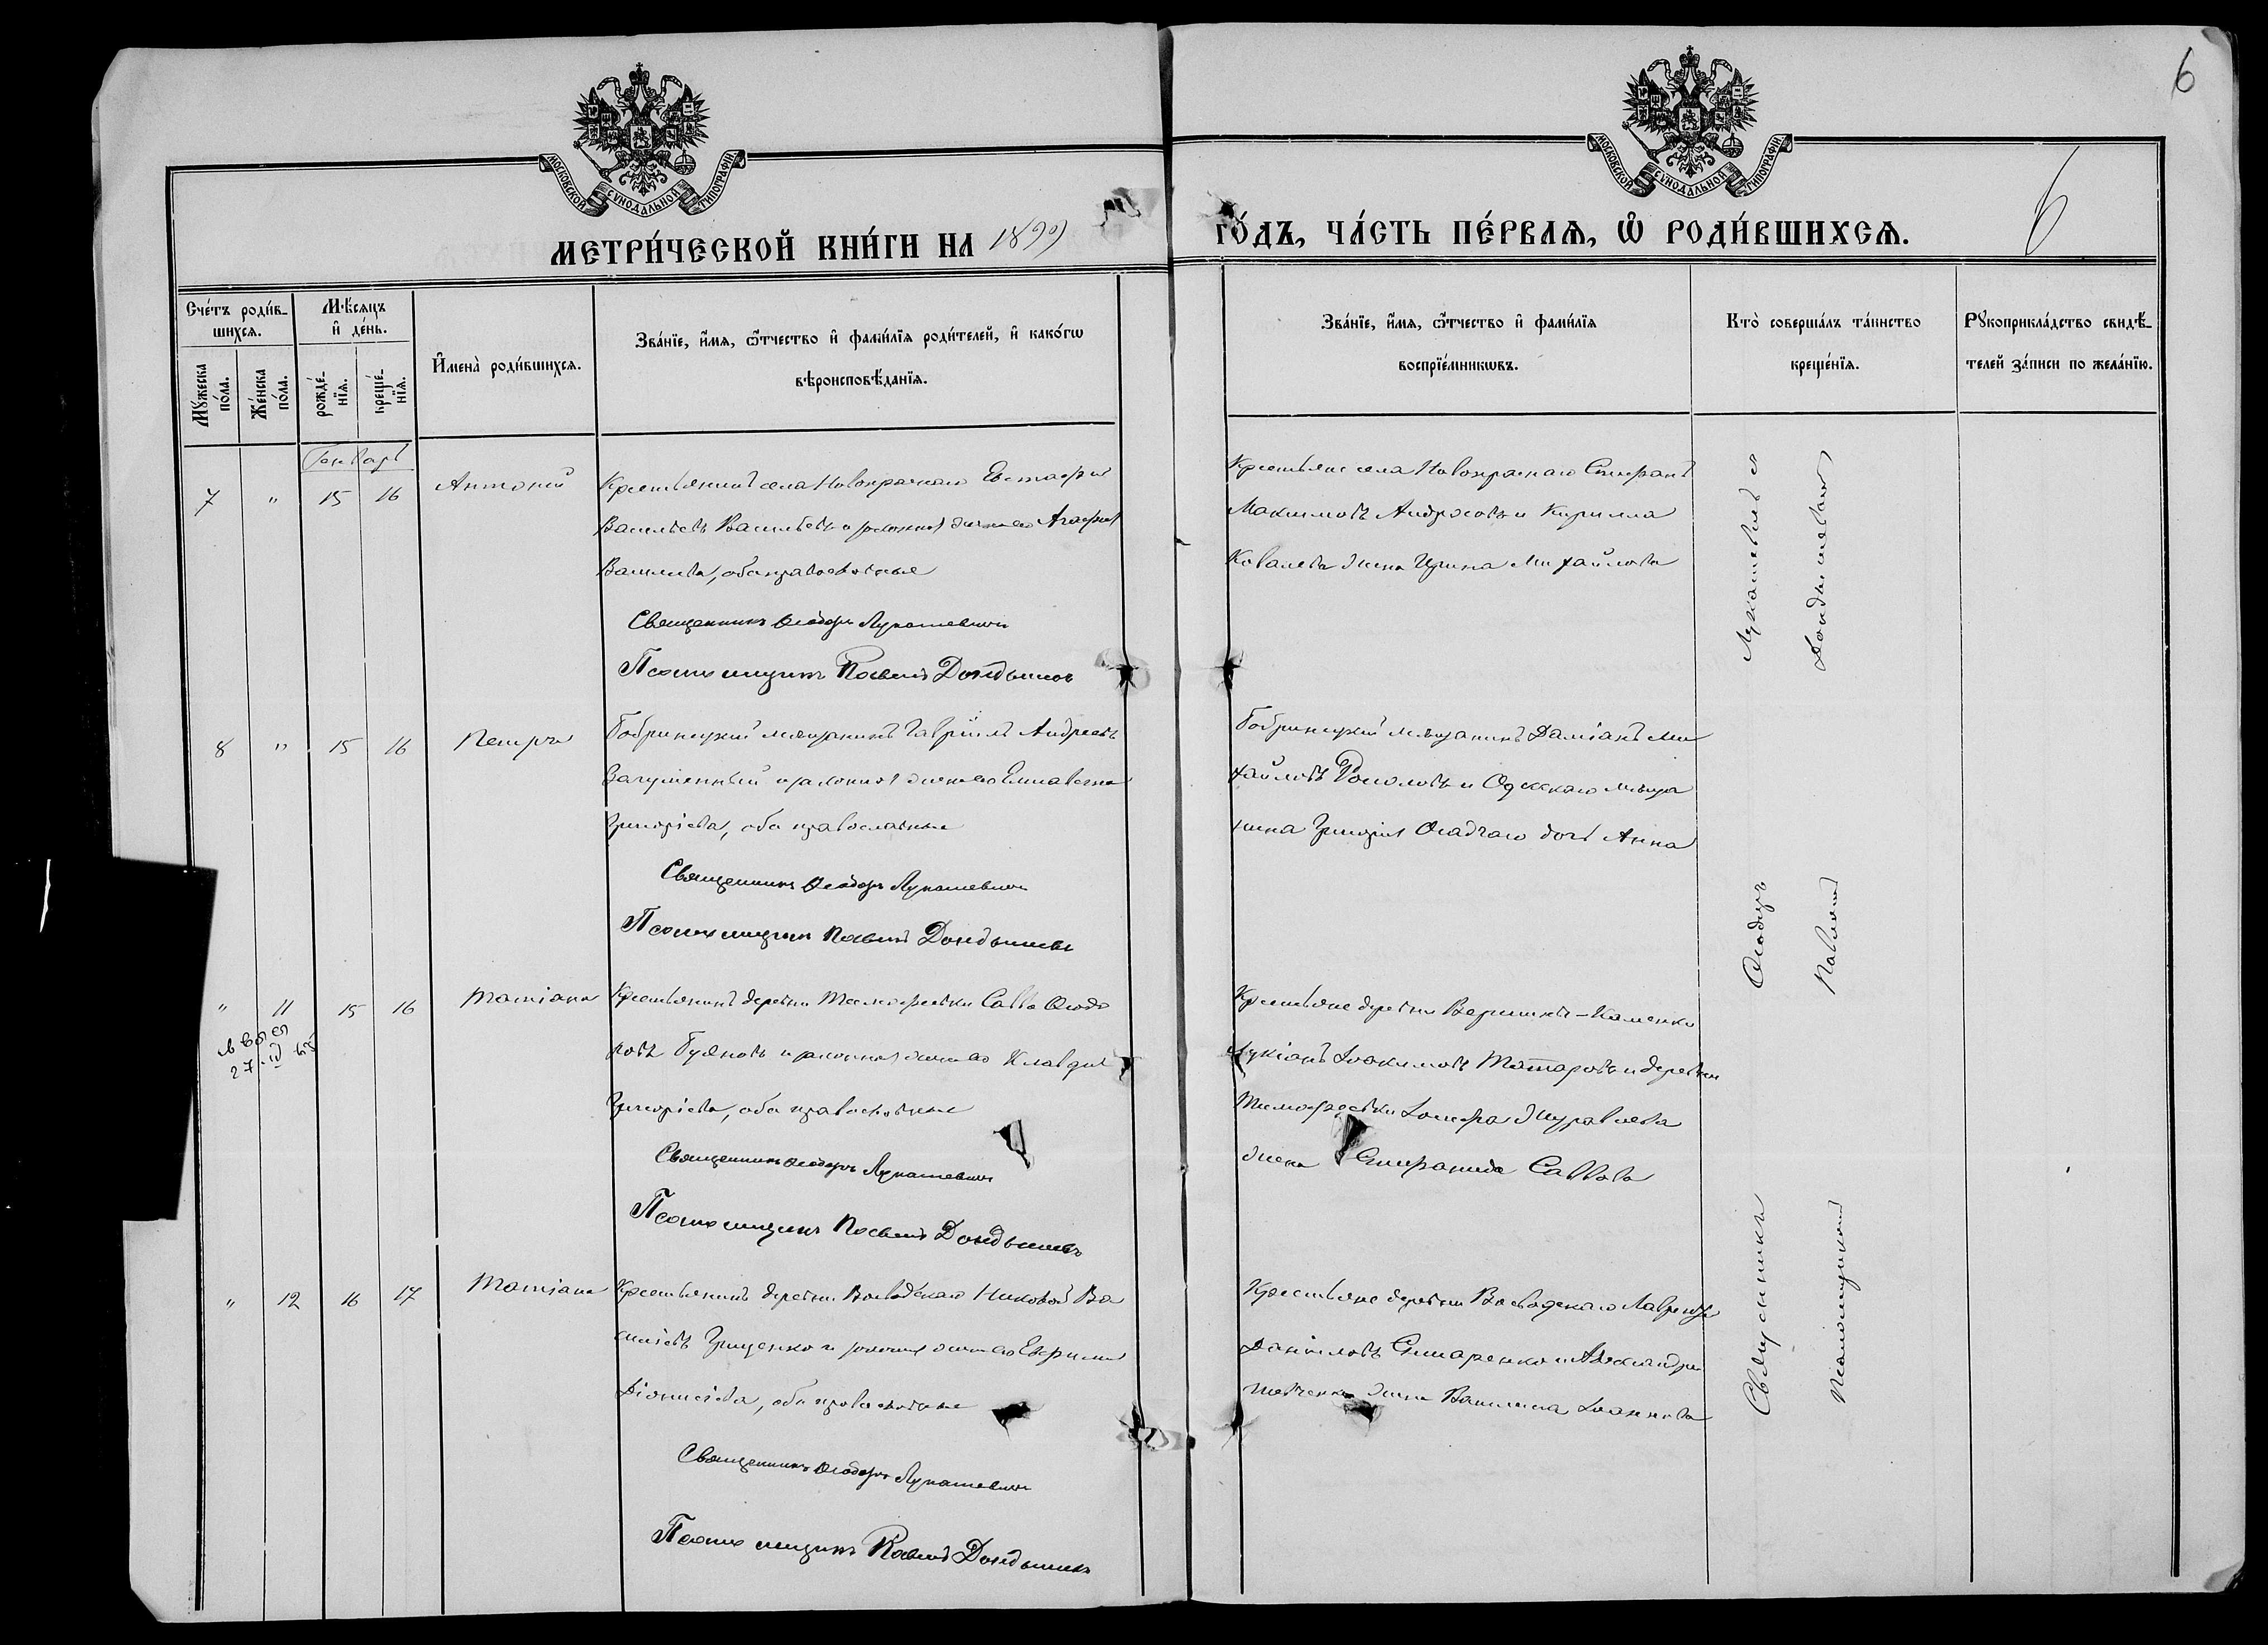 6
МОСКОВСКОЙ СѴНОДАЛЬНОЙ ТИПОГРАФІИ.
МОСКОВСКОЙ СѴНОДАЛЬНОЙ ТИПОГРАФІИ.
6
МЕТРИ́ЧЕСКОЙ КНИ́ГИ НА
ГО́ДЪ, ЧА́СТЬ ПЕ́РВАѦ, Ѡ РОДИ́ВШИХСѦ.
Сче́тъ роди́в-
шихсѧ.
Мꙋ́жеска по́ла.
Же́нска по́ла.
Мѣ́сѧцъ
и҆ де́нь.
рожде́-
нїѧ.
креще́-
нїѧ.
И҆мена̀ роди́вшихсѧ.
Зва́нїе, и҆́мѧ, ѻ҆́тчество и҆ фами́лїѧ роди́телей, и҆ како́гѡ
вѣроисповѣ́данїѧ.
Зва́нїе, и҆́мѧ, ѻ҆́тчество и҆ фами́лїѧ
воспрїе́мникѡвъ.
Кто̀ соверша́лъ та́инство
креще́нїѧ.
Рꙋкоприкла́дство свидѣ́-
телей за́писи по жела́нїю.
Генварь
7 " 15 16 Антоній
Крестьянинъ села Новокраснаго Евстафій
Васильевъ Васильевъ и законная жена его Агафія
Василіева, оба православные
Священникъ Ѳеодоръ Лукашевич
Псаломщикъ Павелъ
Крестьяне села Новокраснаго Стефанъ
Максимовъ Андросовъ и Кирилла
Ковалева жена Ирина Михайлова
8 " 15 16 Петръ
Бобринецкій мѣщанинъ Гавріилъ Андреевъ
Загуменный и законная жена его Елисавета
Григоріева, оба православные
Священникъ Ѳеодоръ Лукашевич
Псаломщикъ Павелъ
Бобринецкій мѣщанинъ Даміанъ Ми
хайловъ и Одесскаго мѣща
нина Григорія Осадчаго дочь Анна
" 11 15 16 Татіана
Крестьянинъ деревни Тимофеевки Савва Ѳеодо
ровъ Буяновъ и законная жена его Клавдія
Григоріева, оба православные
Священникъ Ѳеодоръ Лукашевич
Псаломщикъ Павелъ
Крестьяне деревни -Каменки
Лукіанъ Іоакимовъ Татаровъ и деревни
Тимофеевки Іосифа Журавлева
жена Саввова
" 12 16 17 Татіана
Крестьянинъ деревни Воеводскаго Николай Ва
силіевъ Гриценко и законная жена его Евфимія
Діонисіева, оба православные
Священникъ Ѳеодоръ Лукашевич
Псаломщикъ Павелъ
Крестьяне деревни Воеводскаго Лаврентій
Даніиловъ и Александра
жена Василиса Іоаннова
Священникъ Ѳеодоръ Лукашевичъ и
Псаломщикъ Павелъ